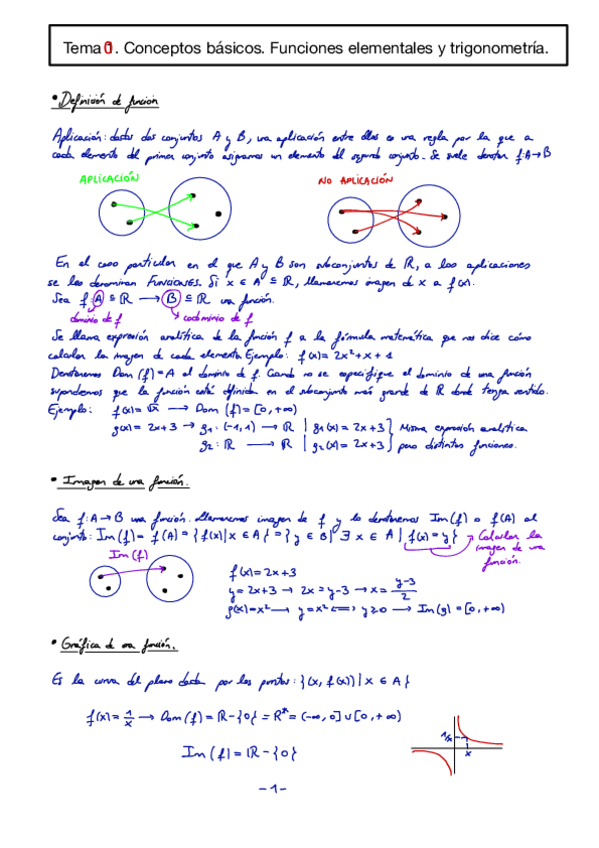 Tema 01. Conceptos básicos. Funciones elementales y trigonometría.
• Definición de función
Aplicación: dados dos conjuntos A y B, una aplicación entre ellos es una regla por la que a
cada elemento del primer conjunto asignamos un elemento del segundo conjunto. Se suele denotar f: A → B
APLICACIÓN
NO APLICACIÓN
En el caso particular en el que A y B son subconjuntos de ℝ, a las aplicaciones
se les denominan FUNCIONES. Si x ∈ A ⊆ ℝ, llamaremos imagen de x a f(x).
Sea f: A ⊆ ℝ → B ⊆ ℝ una función.
dominio de f
codominio de f
Se llama expresión analítica de la función f a la fórmula matemática que nos dice cómo
calcular la imagen de cada elemento. Ejemplo: f(x) = 2x²+x+1
Denotaremos Dom (f) = A al dominio de f. Cuando no se especifique el dominio de una función
supondremos que la función está definida en el subconjunto más grande de ℝ donde tenga sentido.
Ejemplo: f(x) = √x → Dom (f) = [0, +∞)
g(x) = 2x+3 → g₁: (-1, 1) → ℝ | g₁(x) = 2x+3 } Misma expresión analítica
g₂: ℝ → ℝ | g₂(x) = 2x+3 } pero distintas funciones.
• Imagen de una función.
Sea f: A → B una función. Llamaremos imagen de f y lo denotaremos Im(f) o f(A) al
conjunto: Im(f) = f(A) = {f(x) | x ∈ A} = {y ∈ B | ∃ x ∈ A | f(x) = y} → Calcular la
imagen de una
función.
Im(f)
f(x) = 2x+3
y = 2x+3 → 2x = y-3 → x = y-3/2
g(x) = x² → y = x² ⟺ y ≥ 0 → Im(g) = [0, +∞)
• Gráfica de una función.
Es la curva del plano dada por los puntos: {(x, f(x)) | x ∈ A}
f(x) = 1/x → Dom(f) = ℝ-{0} = ℝ* = (-∞, 0] ∪ [0, +∞)
1/x
x
Im(f) = ℝ-{0}
-1-